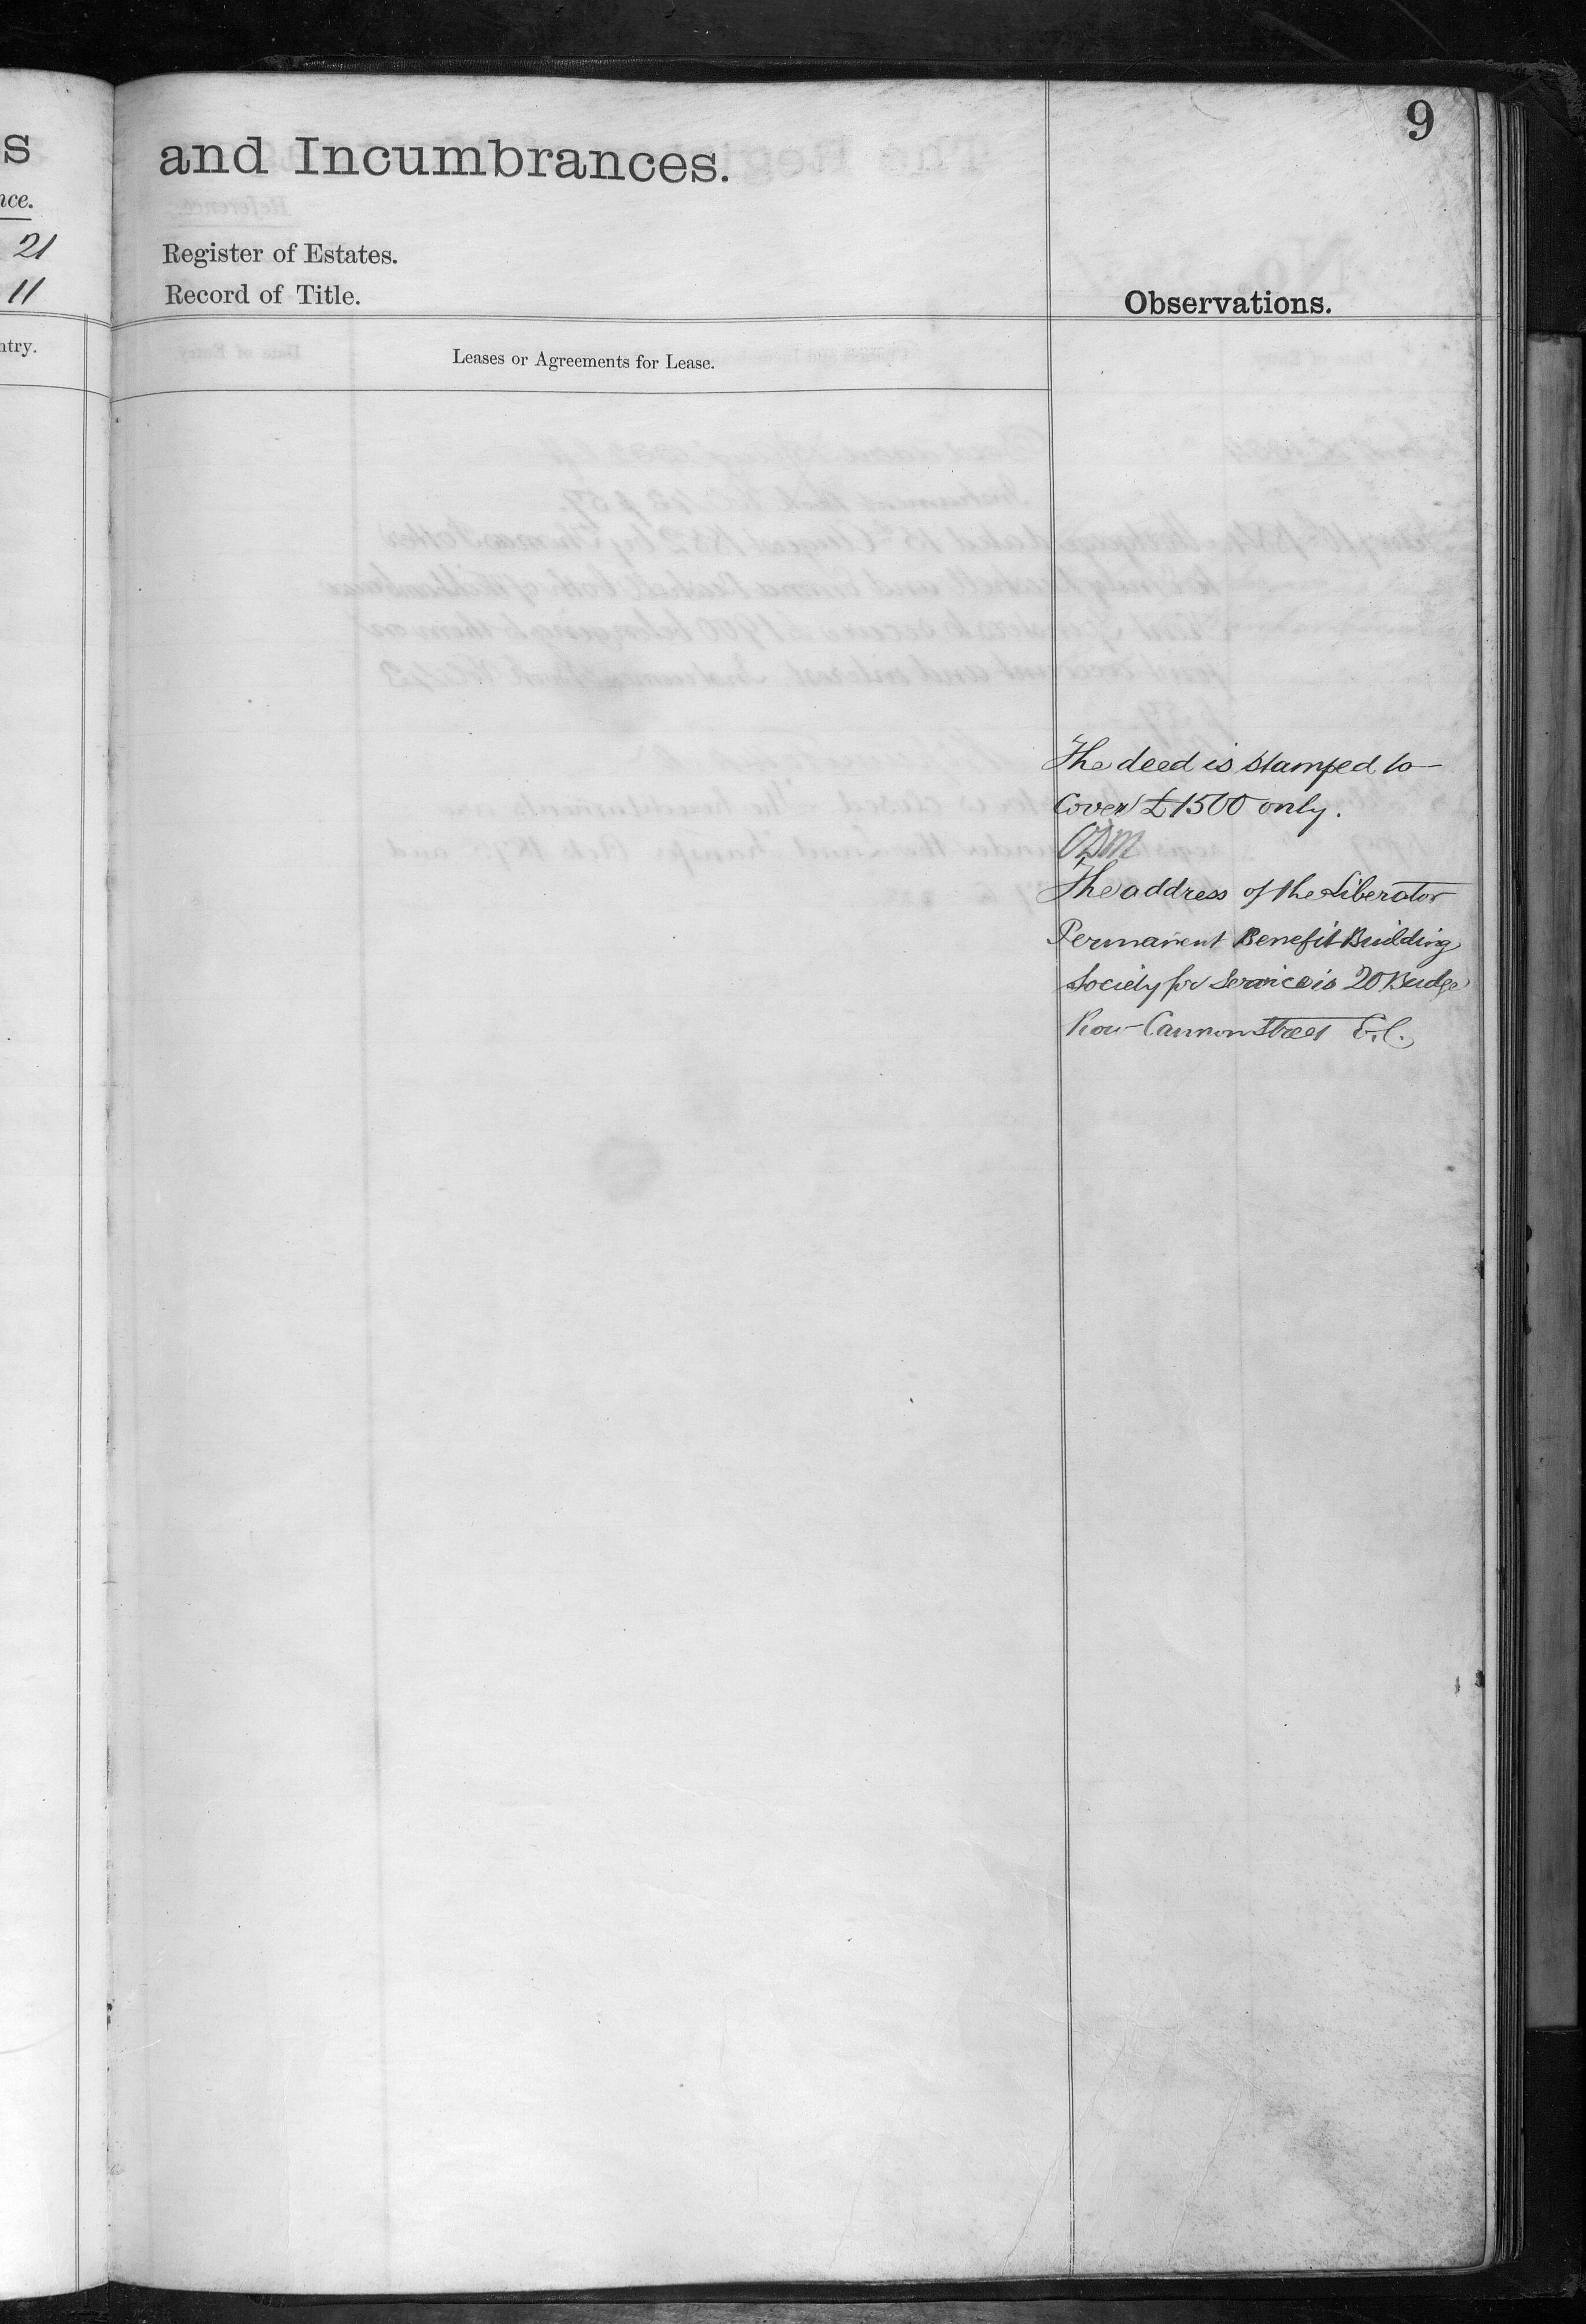 s
nce.
21
11
ntry.
and Incumbrances.
9
Register of Estates.
Record of Title.
Observations.
Leases or Agreements for Lease.
The deed is stamped to
Cover £1500 only.
The address of the Liberator
Permanent Benefit Building
Society for Service is 20 Budge
Row Cannon Street E.C.